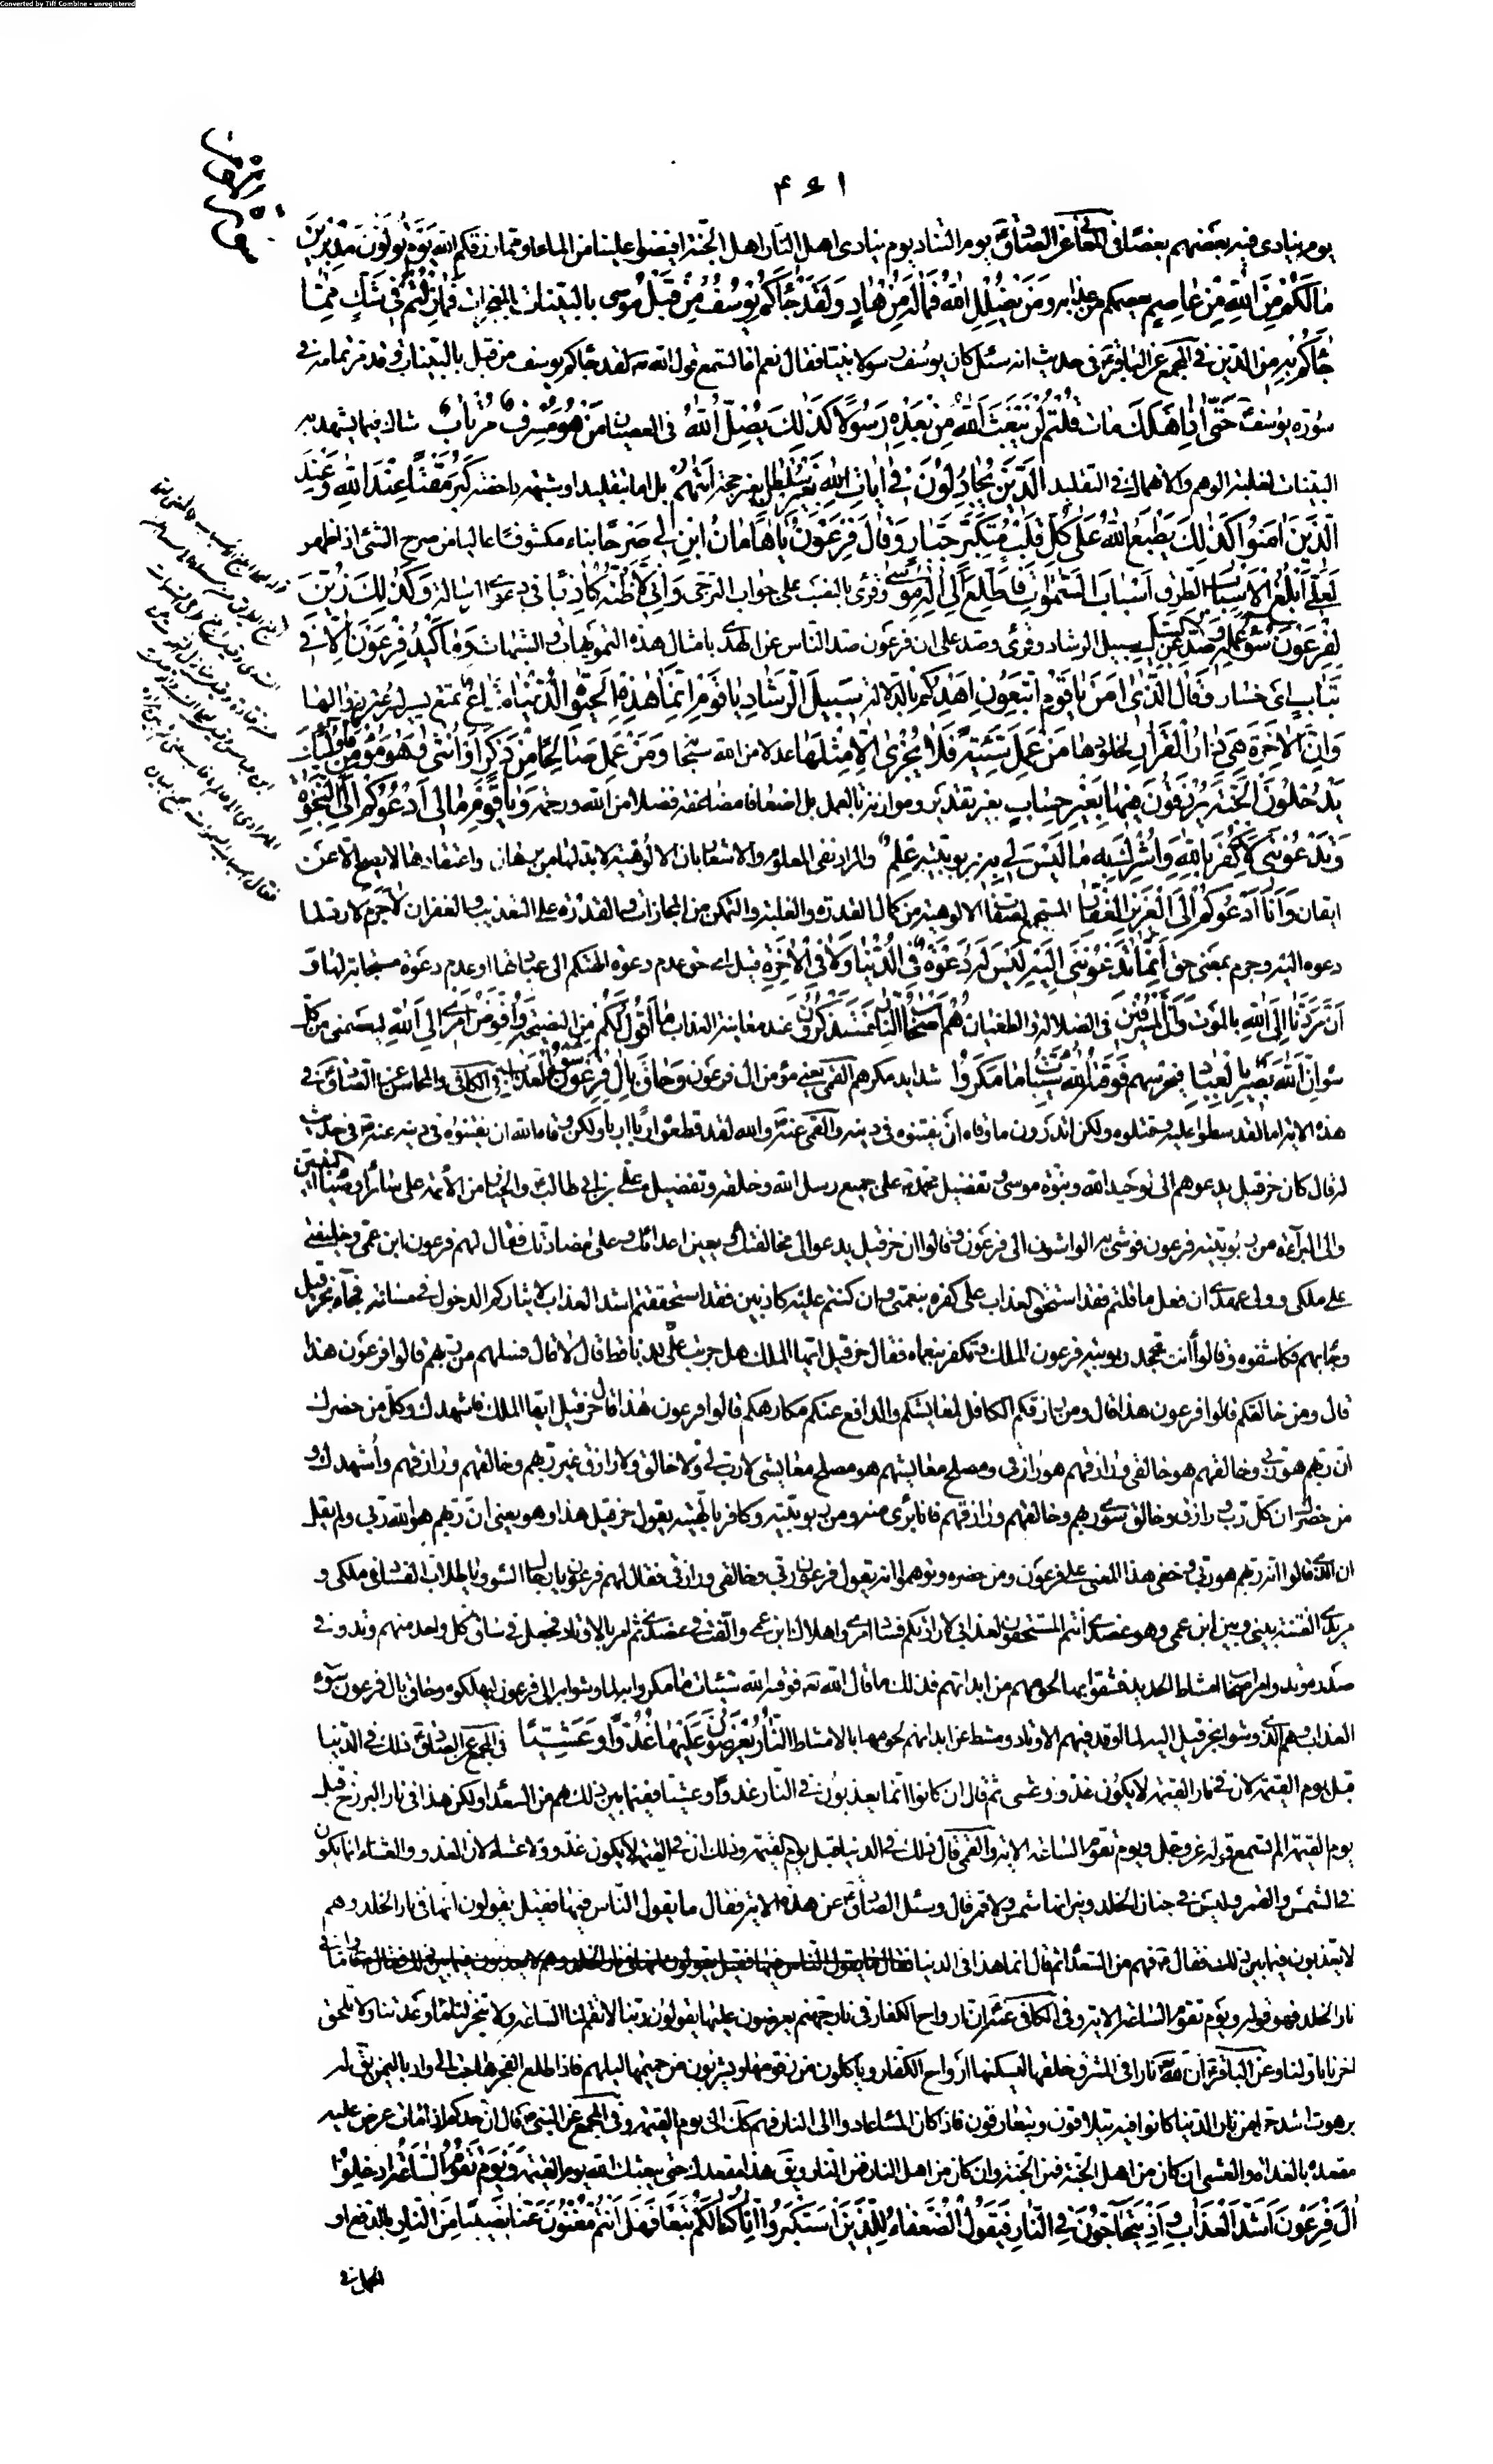 Converted by Tiff Combine - unregistered
۴۶۱
يوم ينادى فيه بعضهم بعضا فى المعانى عن الصادق يوم التناد يوم ينادى اهل النار اهل الجنة افيضوا علينا من الماء او مما رزقكم الله يَوْمَ تُوَلُّونَ مُدْبِرِينَ
مَا لَكُمْ مِنَ اللَّهِ مِنْ عَاصِمٍ يعصمكم من عذابه وَمَنْ يُضْلِلِ اللَّهُ فَمَا لَهُ مِنْ هَادٍ وَلَقَدْ جَاءَكُمْ يُوسُفُ مِنْ قَبْلُ موسى بِالْبَيِّنَاتِ بالمعجزات فَمَا زِلْتُمْ فِي شَكٍّ مِمَّا
جَاءَكُمْ بِهِ من الدين فى المجمع عن الباقر فى حديث انه سئل كان يوسف رسولا نبيا فقال نعم اما تسمع قول الله لقد جاءكم يوسف من قبل بالبينات وقد مر تمامه فى
سورة يوسف حَتَّى إِذَا هَلَكَ مات قُلْتُمْ لَنْ يَبْعَثَ اللَّهُ مِنْ بَعْدِهِ رَسُولًا كَذَلِكَ يُضِلُّ اللَّهُ فى العصيان مَنْ هُوَ مُسْرِفٌ مُرْتَابٌ شاك فيما يشهد به
البينات لغلبة الوهم والانهماك فى التقليد الَّذِينَ يُجَادِلُونَ فِي آيَاتِ اللَّهِ بِغَيْرِ سُلْطَانٍ بغير حجة أَتَاهُمْ بل اما بتقليد او بشبهة داحضة كَبُرَ مَقْتًا عِنْدَ اللَّهِ وَعِنْدَ
الَّذِينَ آمَنُوا كَذَلِكَ يَطْبَعُ اللَّهُ عَلَى كُلِّ قَلْبِ مُتَكَبِّرٍ جَبَّارٍ وَقَالَ فِرْعَوْنُ يَا هَامَانُ ابْنِ لِي صَرْحًا بناء مكشوفا عاليا من صرح الشئ اذا ظهر
لَعَلِّي أَبْلُغُ الْأَسْبَابَ الطرق أَسْبَابَ السَّمَوَاتِ فَأَطَّلِعَ إِلَى إِلَهِ مُوسَى وقرئ بالنصب على جواب الترجى وَإِنِّي لَأَظُنُّهُ كَاذِبًا فى دعوى الرسالة وَكَذَلِكَ زُيِّنَ
لِفِرْعَوْنَ سُوءُ عَمَلِهِ وَصُدَّ عَنِ السَّبِيلِ سبيل الرشاد وقرئ وصد على ان فرعون صد الناس عن الهدى بامثال هذه التمويهات والشبهات وَمَا كَيْدُ فِرْعَوْنَ إِلَّا فِي
تَبَابٍ اى خسار وَقَالَ الَّذِي آمَنَ يَا قَوْمِ اتَّبِعُونِ أَهْدِكُمْ بالدلالة سَبِيلَ الرَّشَادِ يَا قَوْمِ إِنَّمَا هَذِهِ الْحَيَاةُ الدُّنْيَا مَتَاعٌ تمتع يسير لسرعة زوالها
وَإِنَّ الْآخِرَةَ هِيَ دَارُ الْقَرَارِ لخلودها مَنْ عَمِلَ سَيِّئَةً فَلَا يُجْزَى إِلَّا مِثْلَهَا عدلا من الله سبحانه وَمَنْ عَمِلَ صَالِحًا مِنْ ذَكَرٍ أَوْ أُنْثَى وَهُوَ مُؤْمِنٌ فَأُولَئِكَ
يَدْخُلُونَ الْجَنَّةَ يُرْزَقُونَ فِيهَا بِغَيْرِ حِسَابٍ بغير تقدير وموازنة بالعمل بل اضعافا مضاعفة فضلا من الله ورحمة وَيَا قَوْمِ مَا لِي أَدْعُوكُمْ إِلَى النَّجَوةِ
وَتَدْعُونَنِي إِلَى النَّارِ تَدْعُونَنِي لِأَكْفُرَ بِاللَّهِ وَأُشْرِكَ بِهِ مَا لَيْسَ لِي بِهِ بربوبيته عِلْمٌ والمراد نفى المعلوم والاشعار بان الالوهية لابد لها من برهان واعتقادها لا يصح الا عن
ايقان وَأَنَا أَدْعُوكُمْ إِلَى الْعَزِيزِ الْغَفَّارِ المستجمع لصفات الالوهية من كمال القدرة والغلبة والتمكن من المجازات والقدرة على التعذيب والغفران لَا جَرَمَ لا رد لما
دعوه اليه وجرم بمعنى حق أَنَّمَا تَدْعُونَنِي إِلَيْهِ لَيْسَ لَهُ دَعْوَةٌ فِي الدُّنْيَا وَلَا فِي الْآخِرَةِ قيل اى حق عدم دعوة الهتكم الى عبادتها او عدم دعوة مستجابة لها وَ
أَنَّ مَرَدَّنَا إِلَى اللَّهِ بالموت وَأَنَّ الْمُسْرِفِينَ فى الضلالة والطغيان هُمْ أَصْحَابُ النَّارِ فَسَتَذْكُرُونَ عند معاينة العذاب مَا أَقُولُ لَكُمْ من النصيحة وَأُفَوِّضُ أَمْرِي إِلَى اللَّهِ ليعصمنى من كل
سوء إِنَّ اللَّهَ بَصِيرٌ بِالْعِبَادِ فيحرسهم فَوَقَاهُ اللَّهُ سَيِّئَاتِ مَا مَكَرُوا شدايد مكرهم القمى يعنى مؤمن ال فرعون وَحَاقَ بِآلِ فِرْعَوْنَ سُوءُ الْعَذَابِ فى الكافى والمحاسن عن الصادق فى
هذه الاية اما لقد سطوا عليه وقتلوه ولكن اتدرون ما وقاه ان يفتنوه فى دينه والقمى عنه والله لقد قطعوه اربا اربا ولكن وقاه الله ان يفتنوه فى دينه عنه فى حديث
له قال كان خرقيل يدعوهم الى توحيد الله ونبوة موسى وتفضيل محمد على جميع رسل الله وخلقه وتفضيل على بن ابى طالب والخيار من الائمة على سائر اوصياء النبيين
والى البراءة من ربوبيته فرعون فوشى به الواشون الى فرعون وقالوا ان خرقيل يدعو الى مخالفتك ويعين اعدائك على مضادتك فقال لهم فرعون ابن عمى وخليفتى
على ملكى وولى عهدى ان فعل ما قلتم فقد استحق العذاب على كفره بنعمتى وان كنتم عليه كاذبين فقد استحققتم اشد العذاب لايثاركم الدخول فى مسائته فجاء بخرقيل
وجاء بهم فكاشفوه وقالوا أنت تجحد ربوبية فرعون الملك وتكفر بنعماه فقال خرقيل ايها الملك هل جربت على كذبا قط قال لا قال فسلهم من ربهم قالوا فرعون هذا
قال ومن خالقكم قالوا فرعون هذا قال ومن رازقكم الكافل لمعايشكم والدافع عنكم مكارهكم قالوا فرعون هذا قال خرقيل ايها الملك فاشهدك وكل من حضرك
ان ربهم هو ربى وخالقهم هو خالقى ورازقهم هو رازقى ومصلح معايشهم هو مصلح معايشى لا رب لى ولا خالق ولا رازق غير ربهم وخالقهم ورازقهم وأشهدك و
من حضرك ان كل رب ورازق وخالق سوى ربهم وخالقهم ورازقهم فانا برئ منه ومن ربوبيته وكافر بالهيته يقول خرقيل هذا وهو يعنى ان ربهم هو الله ربى ولم يقل
ان الذى قالوا انه ربهم هو ربى وخفى هذا المعنى على فرعون ومن حضره وتوهموا انه يقول فرعون ربى وخالقى ورازقى فقال لهم فرعون يا رجال السوء ويا طلاب الفساد فى ملكى و
مريدى الفتنة بينى وبين ابن عمى وهو عضدى انتم المستحقون لعذابى لارادتكم فساد امرى واهلاك ابن عمى والفت فى عضدى ثم امر بالاوتاد فجعل فى ساق كل واحد منهم وتد وفى
صدره وتد وامر اصحاب امشاط الحديد فشقوا بها لحومهم من ابدانهم فذلك ما قال الله فوقاه الله سيئات ما مكروا به لما وشوا به الى فرعون ليهلكوه وحاق بال فرعون سوء
العذاب وهم الذين وشوا بخرقيل اليه لما اوتد فيهم الاوتاد ومشط عن ابدانهم لحومها بالامشاط النَّارُ يُعْرَضُونَ عَلَيْهَا غُدُوًّا وَعَشِيًّا فى المجمع عن الصادق ذلك فى الدنيا
قبل يوم القيمة لان فى نار القيمة لا يكون غدو وعشى ثم قال ان كانوا انما يعذبون فى النار غدوا وعشيا ففيما بين ذلك هم من السعداء ولكن هذا فى نار البرزخ قبل
يوم القيمة الم تسمع قوله عز وجل ويوم تقوم الساعة الاية والقمى قال ذلك فى الدنيا قبل يوم القيمة وذلك ان فى القيمة لا يكون غدو ولا عشاء لان الغدو والعشاء انما يكون
فى الشمس والقمر وليس فى جنان الخلد ونيرانها شمس ولا قمر قال وسئل الصادق عن هذه الاية فقال ما يقول الناس فيها فقيل يقولون انها فى نار الخلد وهم
لا يعذبون فيما بين ذلك فقال فهم من السعداء ثم قال انما هذا فى الدنيا فاما فى
نار الخلد فهو قوله ويوم تقوم الساعة الاية وفى الكافى عنه ان ارواح الكفار فى نار جهنم يعرضون عليها يقولون ربنا لا تقم لنا الساعة ولا تنجز لنا ما وعدتنا ولا تلحق
اخرنا باولنا وعن الباقر ان لله نارا فى المشرق خلقها ليسكنها ارواح الكفار وياكلون من زقومها ويشربون من حميمها ليلهم فاذا طلع الفجر هاجت الى واد باليمن يق له
برهوت اشد حرا من نار الدنيا كانوا فيه يتلاقون ويتعارفون فاذا كان المساء عادوا الى النار فهم كك الى يوم القيمة وفى المجمع عن النبى قال ان احدكم اذا مات عرض عليه
مقعده بالغداة والعشى ان كان من اهل الجنة فمن الجنة وان كان من اهل النار فمن النار ويق هذا مقعدك حتى يبعثك الله يوم القيمة وَيَوْمَ تَقُومُ السَّاعَةُ أَدْخِلُوا
آلَ فِرْعَوْنَ أَشَدَّ الْعَذَابِ وَإِذْ يَتَحَاجُّونَ فِي النَّارِ فَيَقُولُ الضُّعَفَاءُ لِلَّذِينَ اسْتَكْبَرُوا إِنَّا كُنَّا لَكُمْ تَبَعًا فَهَلْ أَنْتُمْ مُغْنُونَ عَنَّا نَصِيبًا مِنَ النَّارِ بالدفع او